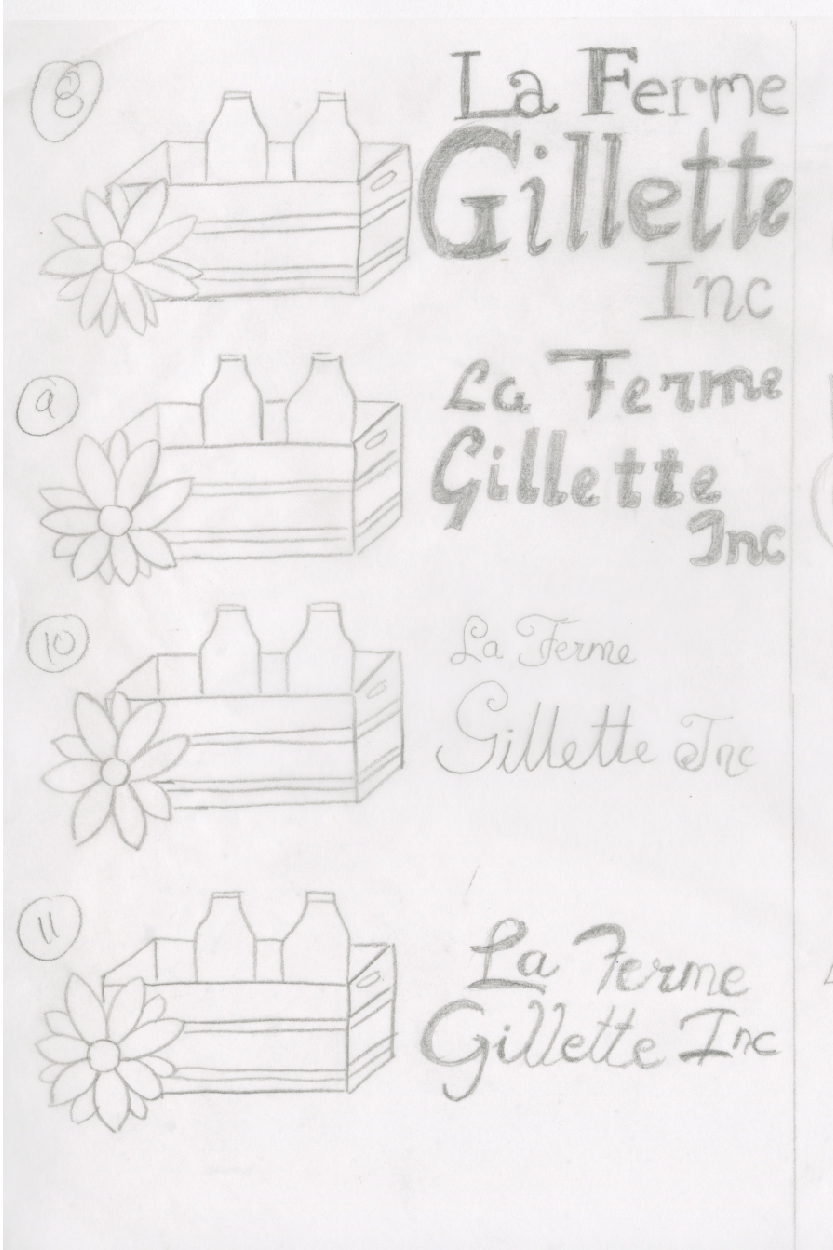 8
La Ferme
Gillette
Inc
9
La Ferme
Gillette
Inc
10
La Ferme
Gillette Inc
11
La Ferme
Gillette Inc